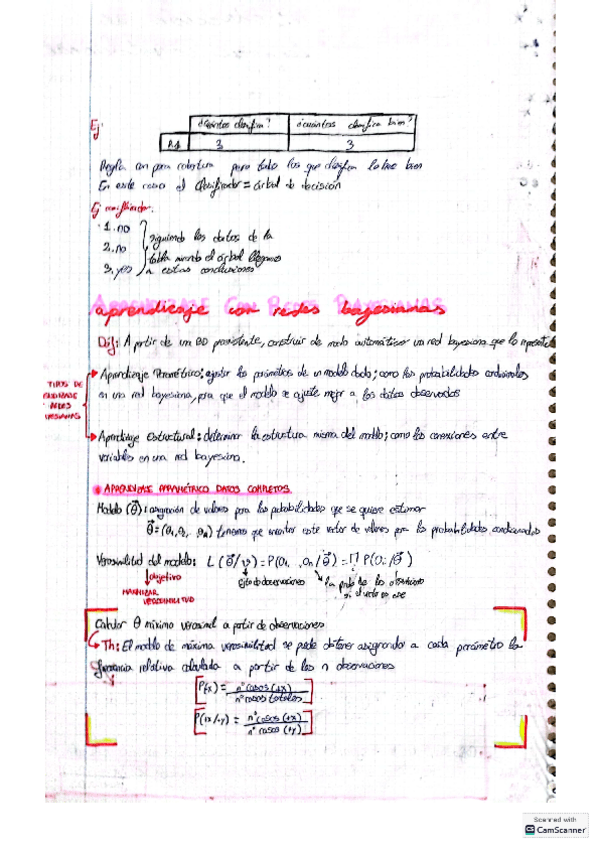 Ej
¿Cuántos clasifica? ¿cuántos clasifica bien?
R1 3 3
Regla con poca cobertura pero todo los que clasifica lo hace bien
En este caso el clasificador = árbol de decisión
Ej clasificador:
1. no
2. no
3. yes
siguiendo los datos de la
tabla mirando el árbol llegamos
a estas conclusiones
aprendizaje con redes bayesianas
Def: A partir de un BD persistente, construir de modo automático un red bayesiana que lo represente
TIPOS DE
REDES
Aprendizaje Paramétrico: ajustar los parámetros de un modelo dado; como las probabilidades condicionales
en una red bayesiana, para que el modelo se ajuste mejor a los datos observados
Aprendizaje Estructural: determinar la estructura misma del modelo; como las conexiones entre
variables en una red bayesiana.
APRENDIZAJE PARAMÉTRICO DATOS COMPLETOS.
Modelo (θ): asignación de valores para las probabilidades que se quiere estimar
tenemos que encontrar este vector de valores para las probabilidades condicionadas
Verosimilitud del modelo:
objetivo
MAXIMIZAR
VEROSIMILITUD
Calcular θ máximo verosímil a partir de observaciones
Th: El modelo de máxima verosimilitud se puede obtener asignando a cada parámetro la
frecuencia relativa calculada a partir de las n observaciones
P(x) = nº casos (+x) / nº casos totales
P(+x/-y) = nº casos (+x) / nº casos (+y)
Scanned with
CamScanner